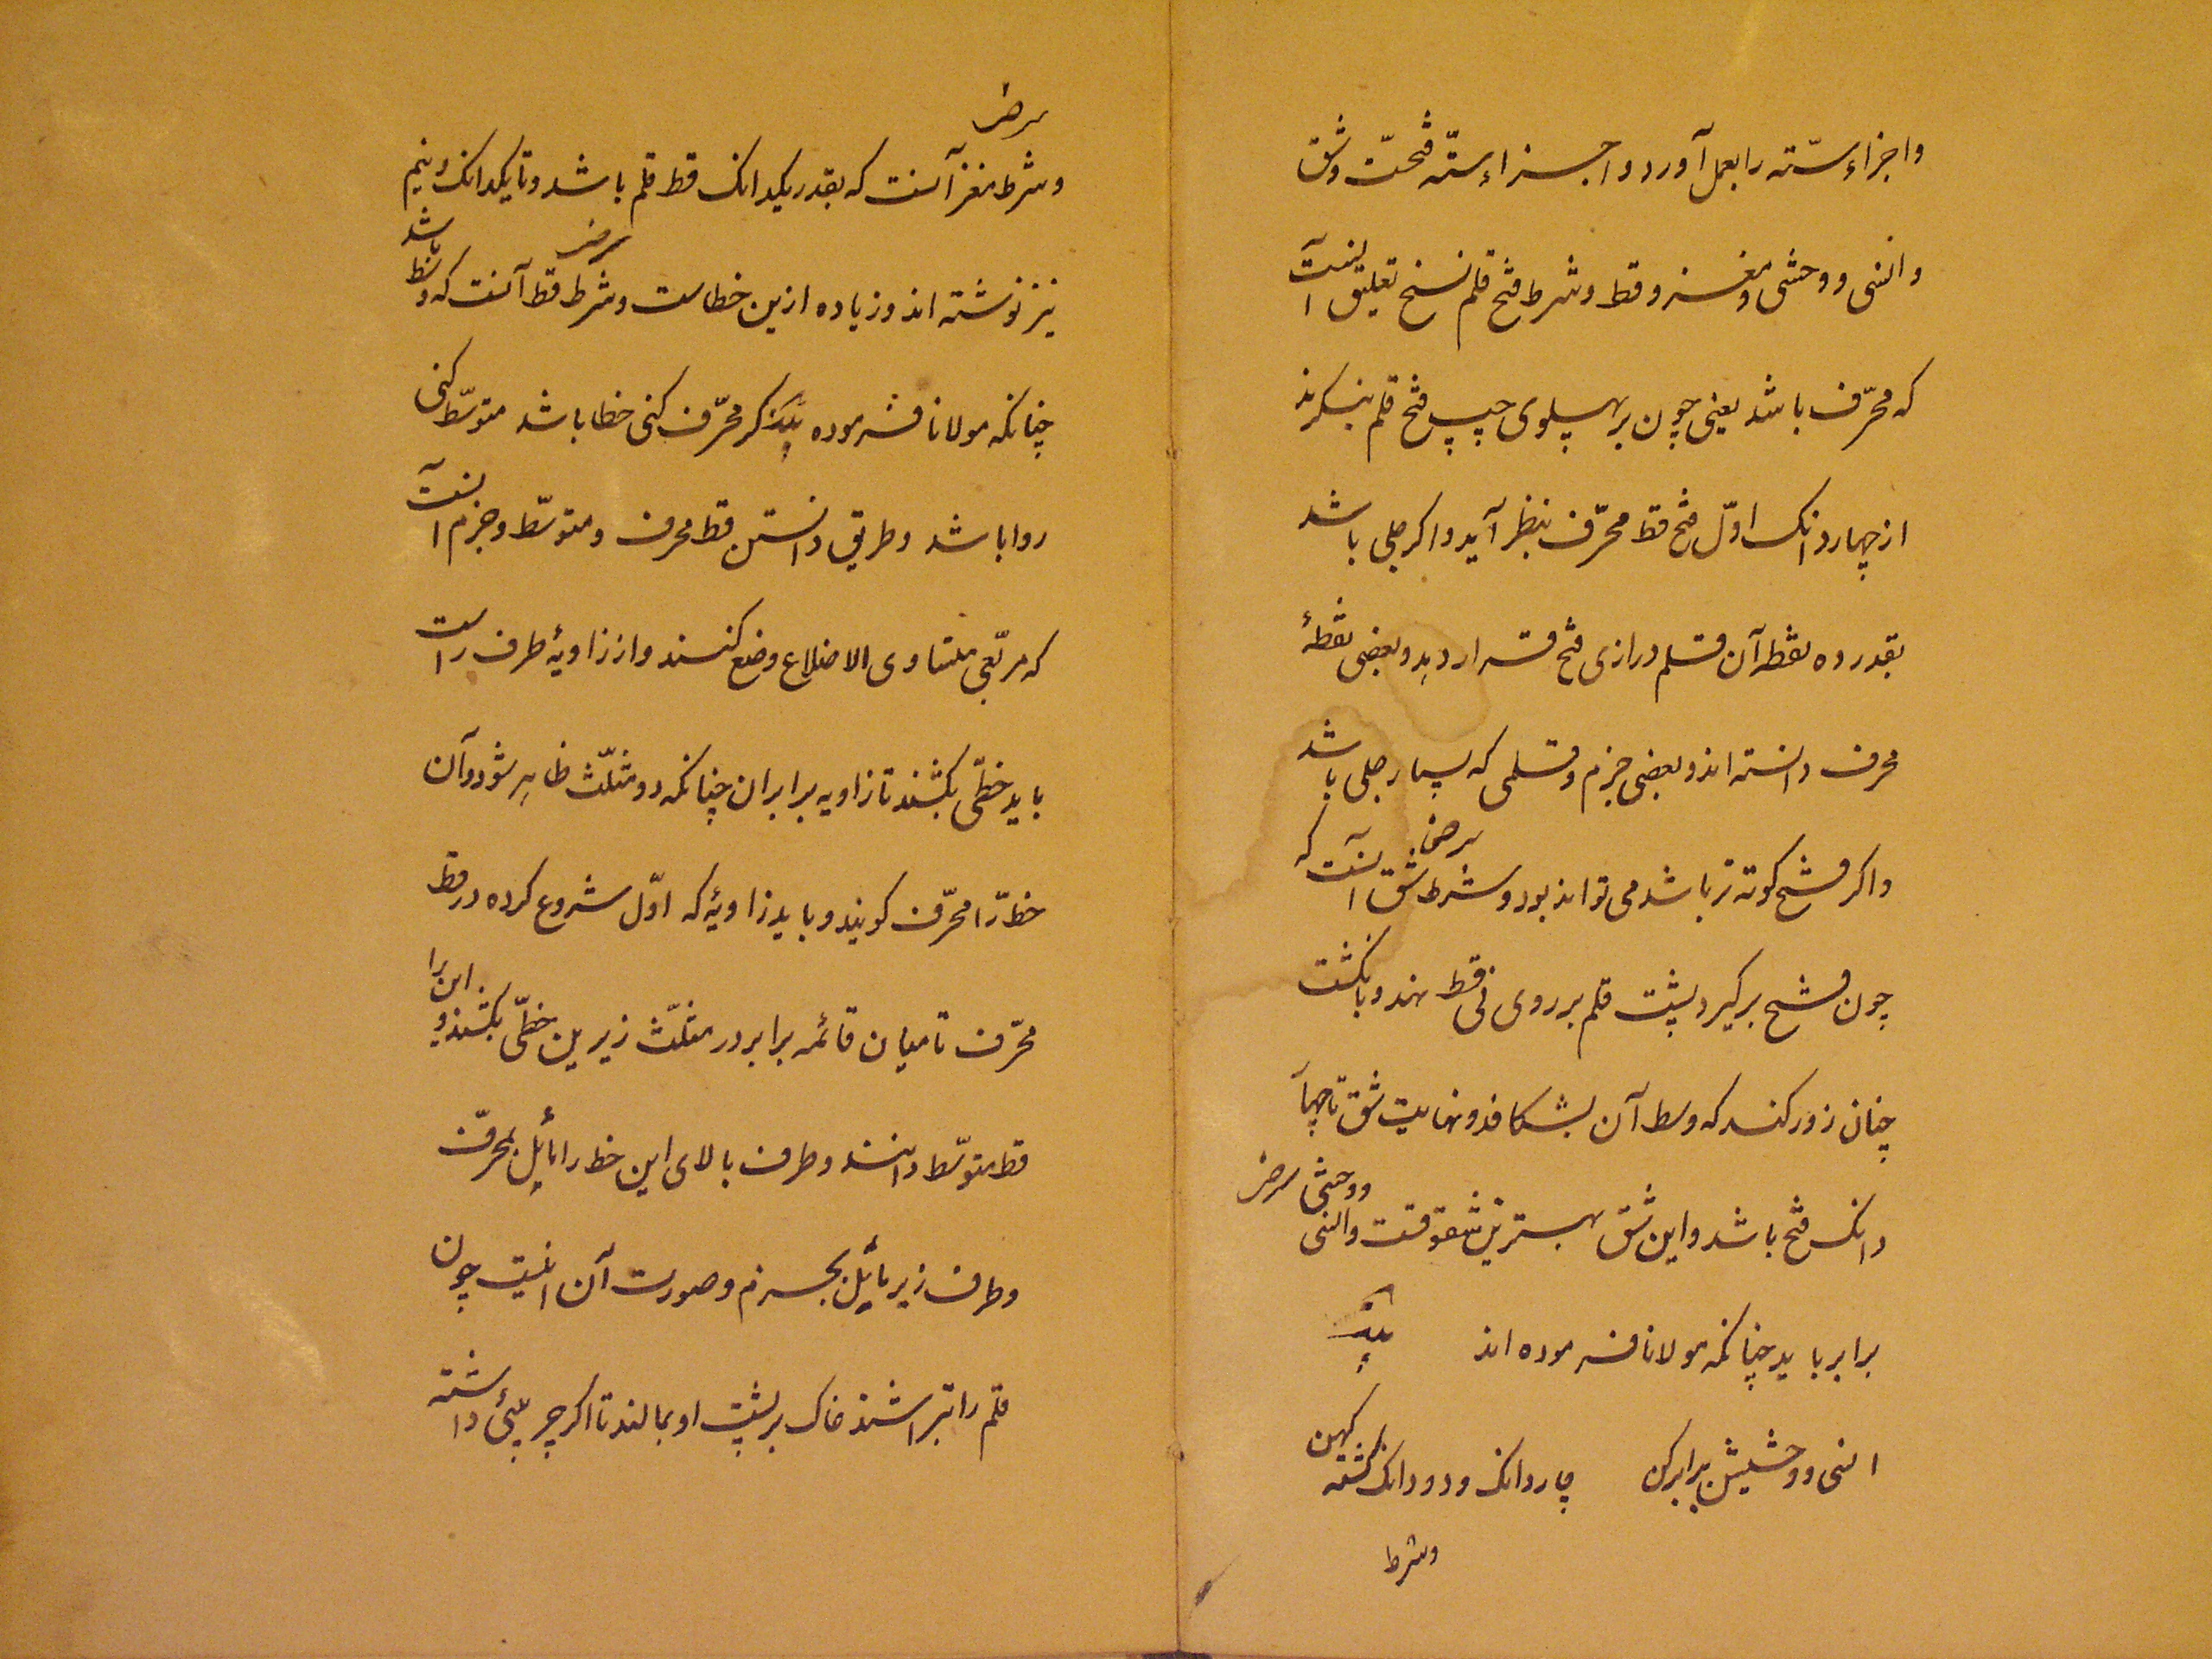 واجزاء ستّه را بعمل آورد و اجزاء ستّه فتحت و شق
و انسی و وحشی و مغز و قط و شرط فتح قلم نسخ تعلیق آنست
که محرّف باشد یعنی چون بر پهلوی چپ فتح قلم بنگرند
از چهار دانک اوّل فتح قط محرّف بنظر آید و اگر جلی باشد
بقدر ده نقطه آن قلم درازی فتح قرار دهد و بعضی نقطهٔ
محرف دانسته اند و بعضی جزم و قلمی که بسیار جلی باشد
و اگر فتح کوته تر باشد می تواند بود و شرط شق آنست که
سرخی
چون فتح برگیرد پشت قلم بر روی نی قط نهد و بانگشت
چنان زور کند که وسط آن بشکافد و نهایت شق تا چهار
دانک فتح باشد و این شق بهترین شقوقست و انسی و وحشی
سرخی
برابر باید چنانکه مولانا فرموده اند بیت
انسی و وحشیش برابر کن چار دانک و دو دانک گشته کهن
وشرط
سرخی
و شرط مغز آنست که بقدر یکدانک قط قلم باشد و تا یکدانک و نیم
نیز نوشته اند و زیاده ازین خطاست و شرط قط آنست که وسط باشد
سرخی
چنانکه مولانا فرموده بیت گر محرّف کنی خطا باشد متوسّط کنی
روا باشد و طریق دانستن قط محرف و متوسّط و جزم آنست
که مربّعی متساوی الاضلاع وضع کنند و از زاویهٔ طرف راست
باید خطّی بکشند تا زاویه برابر آن چنانکه دو مثلّث ظاهر شود و آن
خط را محرّف گویند و باید زاویهٔ که اوّل شروع کرده در قط
محرّف تا میان قائمه برابر در مثلّث زیرین خطّی بکشند و این را
قط متوسّط دانند و طرف بالای این خط را مایل بمحرّف
و طرف زیر مایل بجزم و صورت آن اینست چون
قلم را بتراشند خاک بر پشت او بمالند تا اگر چربیئ داشته